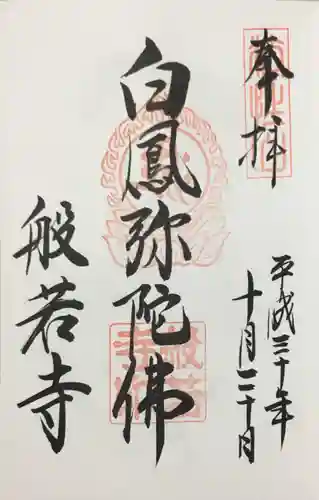 奉拝
平成三十年
十月二十日
白鳳弥陀佛
般若寺